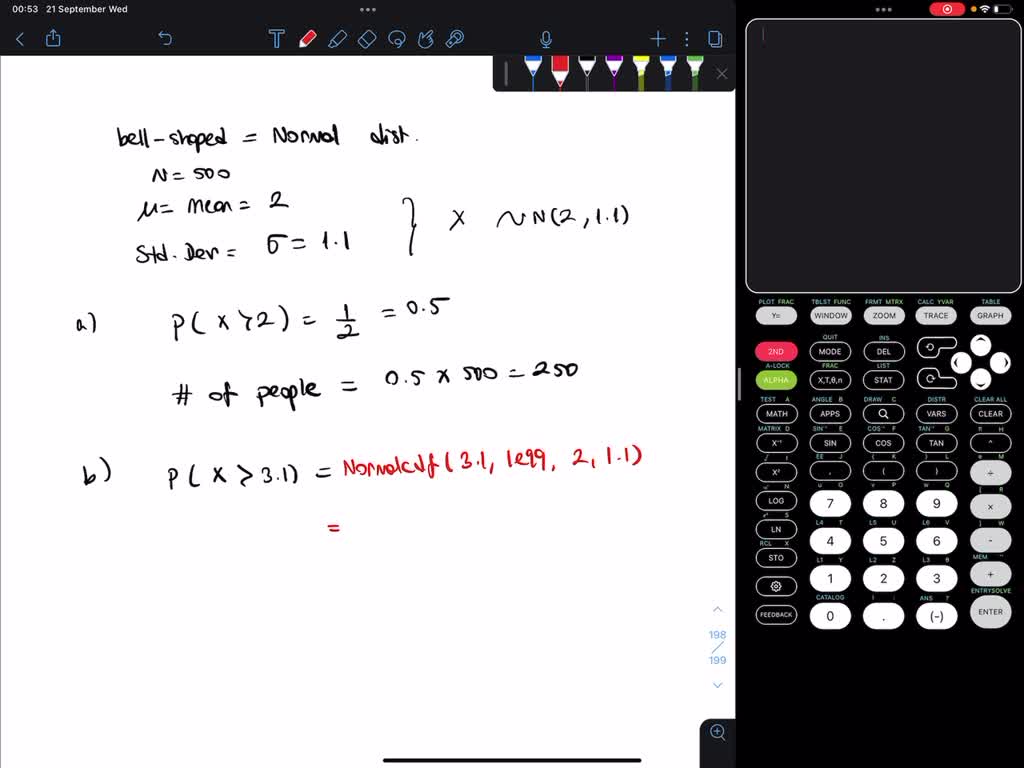 00:53 21 September Wed
bell-shaped = Normal dist.
N = 500
μ = mean = 2
Std. Dev = σ = 1.1 } X ~ N(2, 1.1)
a) P(X > 2) = 1/2 = 0.5
# of people = 0.5 × 500 = 250
b) P(X > 3.1) = Normalcdf(3.1, 1e99, 2, 1.1)
=
198
199
PLOT FRAC TBLST FUNC FRMT MTRX CALC YVAR TABLE
Y= WINDOW ZOOM TRACE GRAPH
QUIT INS
2ND MODE DEL
A-LOCK FRAC LIST
ALPHA X,T,θ,n STAT
TEST A ANGLE B DRAW C DISTR CLEAR ALL
MATH APPS VARS CLEAR
MATRIX D SIN⁻¹ E COS⁻¹ F TAN⁻¹ G π H
X⁻¹ SIN COS TAN ^
EE J { K } L e M
X² , ( ) ÷
N u O v P w Q [ R
LOG 7 8 9 ×
S L4 T L5 U L6 V ] W
LN 4 5 6 -
RCL X L1 Y L2 Z L3 θ MEM "
STO 1 2 3 +
CATALOG i : ANS ? ENTRYSOLVE
FEEDBACK 0 . (-) ENTER